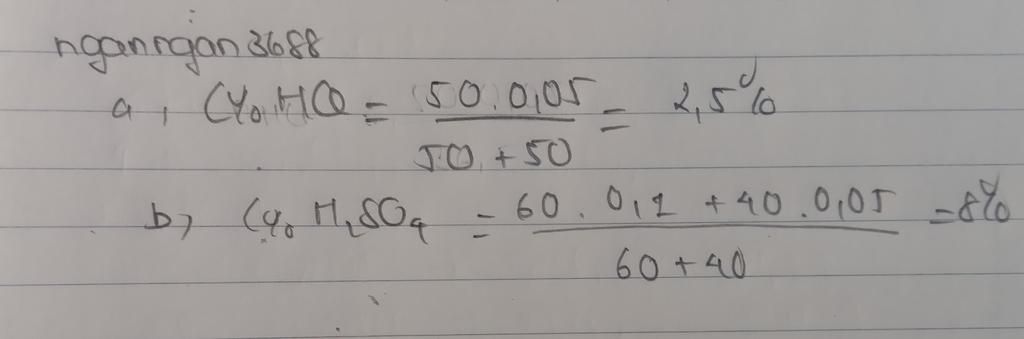 nganngan3688
a, C% HCl = 50.0,05 / 50+50 = 2,5%
b, C% H₂SO₄ = 60.0,1+40.0,05 / 60+40 = 8%